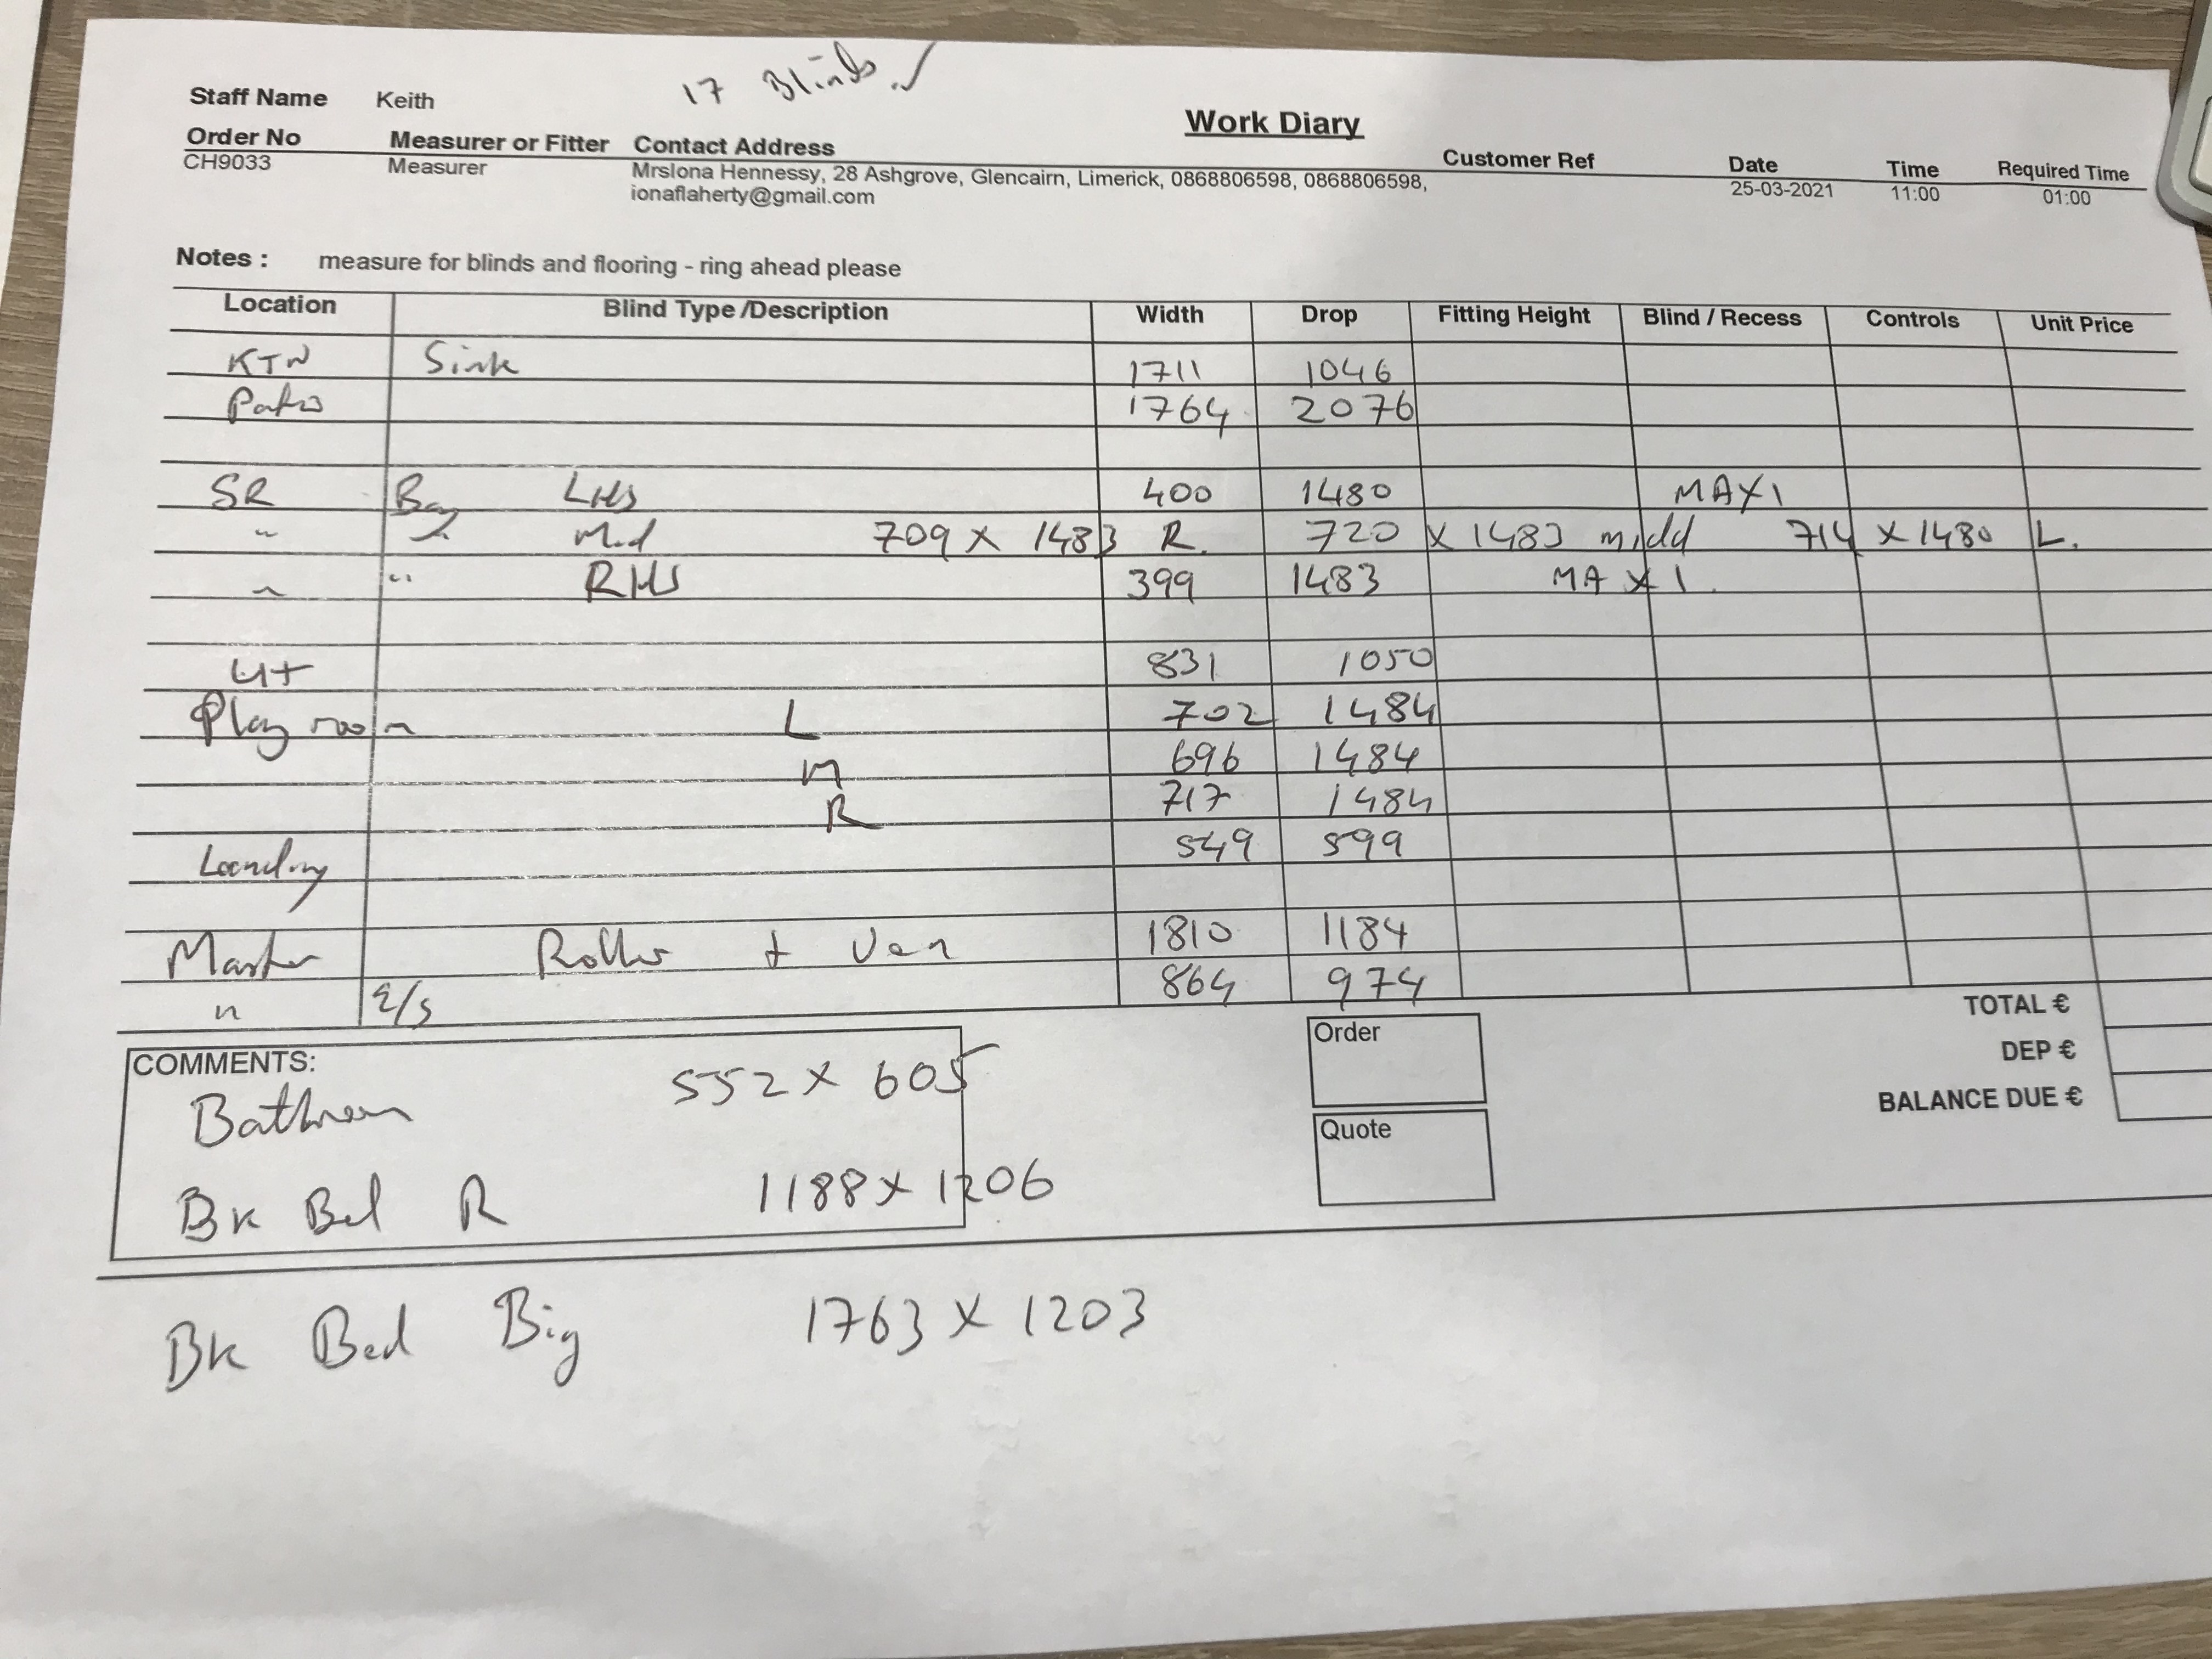 17 Blinds. ✓
Staff Name Keith
Work Diary
Order No Measurer or Fitter Contact Address Customer Ref Date Time Required Time
CH9033 Measurer MrsIona Hennessy, 28 Ashgrove, Glencairn, Limerick, 0868806598, 0868806598, 25-03-2021 11:00 01:00
ionaflaherty@gmail.com
Notes : measure for blinds and flooring - ring ahead please
Location Blind Type /Description Width Drop Fitting Height Blind / Recess Controls Unit Price
KTN Sink 1711 1046
Patio 1764 2076
SR Bay LHS 400 1480 MAX 1
" " Mid 709 X 1483 R. 720 X 1483 midd 714 X 1480 L.
" " RHS 399 1483 MAX 1.
Ut 831 1050
Play room L 702 1484
M 696 1484
R 717 1484
Landing 549 599
Master Roller + Ven 1810 1184
" E/S 864 974
TOTAL €
DEP €
BALANCE DUE €
Order
Quote
COMMENTS:
Bathroom 552 X 605
Bk Bed R 1188 X 1206
Bk Bed Big 1763 X 1203